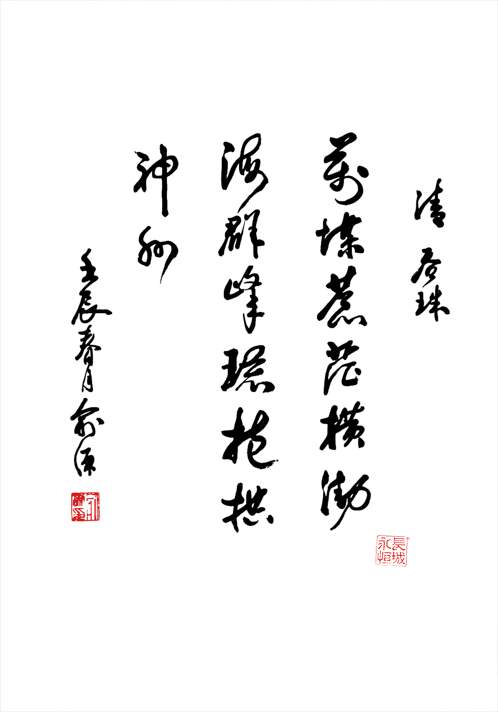 清 珠
萬堞蒼茫橫渤
海群峰環抱拱
神州
壬辰春月俞
長城
永恒